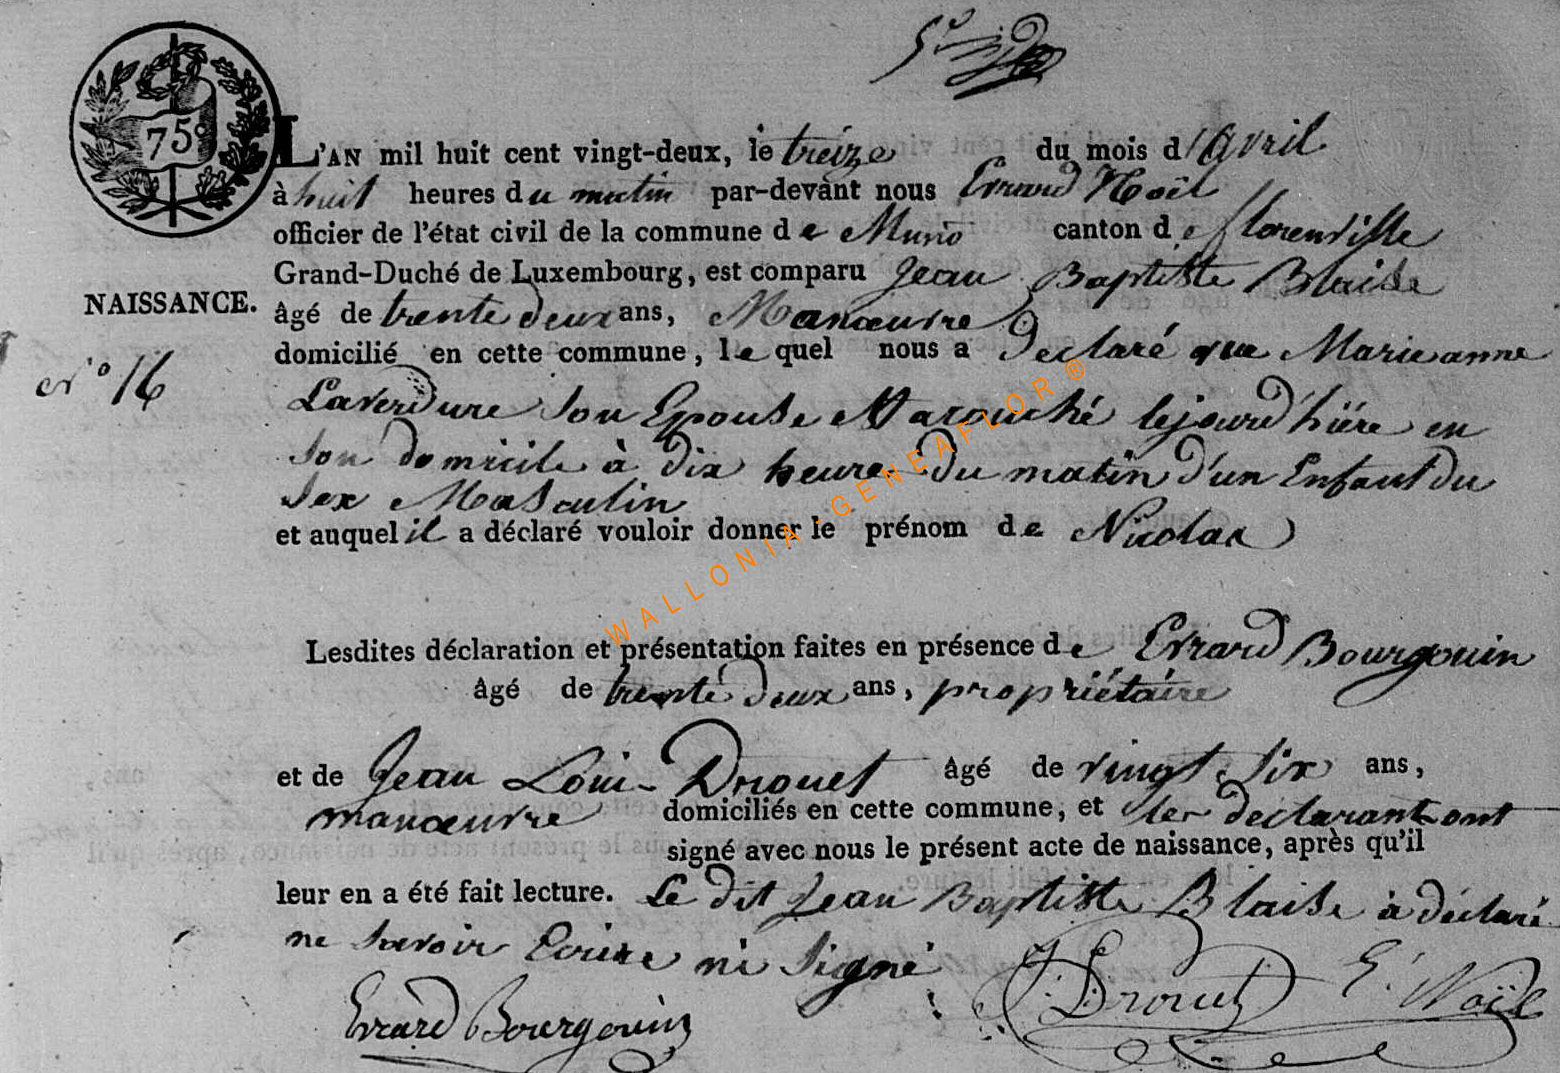 75c
L'AN mil huit cent vingt-deux, le treize du mois d'avril
à huit heures du matin par-devant nous Errard Noël
officier de l'état civil de la commune de Muno canton de florenville
Grand-Duché de Luxembourg, est comparu Jean Baptiste Blaise
NAISSANCE.
âgé de trente deux ans, Manœuvre
domicilié en cette commune, le quel nous a declaré que Marieanne
N.º 16
Laverdure son Epouse At acouché lejourd'hiére en
son domicile à dix heure du matin d'un Enfant du
sex Masculin
et auquel il a déclaré vouloir donner le prénom de Nicolas
WALLONIA-GENEAFLOR®
Lesdites déclaration et présentation faites en présence de Errard Bourgouin
âgé de trente deux ans, propriétaire
et de Jean Loui Drouet âgé de vingt six ans,
manœuvre domiciliés en cette commune, et les declarant ont
signé avec nous le présent acte de naissance, après qu'il
leur en a été fait lecture. Le dit Jean Baptiste Blaise à déclaré
ne savoir Ecrire ni signé
Errard Bourgouin J L Drouet E. Noël